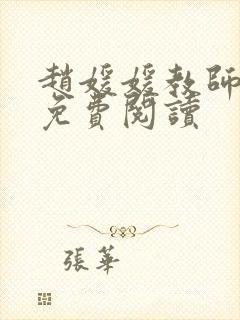 趙媛媛教師
免費閱讀
張華